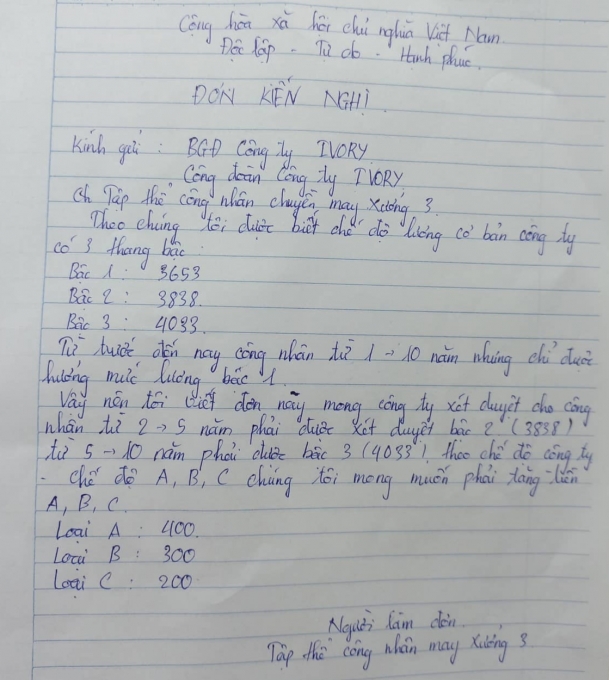 Cộng hòa xã hội chủ nghĩa Việt Nam.
Độc lập - Tự do - Hạnh phúc.
ĐƠN KIẾN NGHỊ
Kính gửi : BGĐ Công ty IVORY
Công đoàn Công ty IVORY
Tập thể công nhân chuyền may xưởng 3.
Theo chúng tôi được biết chế độ lương cơ bản công ty
có 3 thang bậc :
Bậc 1 : 3653
Bậc 2 : 3838.
Bậc 3 : 4033.
Từ trước đến nay công nhân từ 1 → 10 năm nhưng chỉ được
hưởng mức lương bậc 1.
Vậy nên tôi viết đơn này mong công ty xét duyệt cho công
nhân từ 2 → 5 năm phải được xét duyệt bậc 2 (3838)
từ 5 → 10 năm phải được bậc 3 (4033) theo chế độ công ty
- chế độ A, B, C chúng tôi mong muốn phải tăng tiền
A, B, C.
Loại A : 400.
Loại B : 300
Loại C : 200
Người làm đơn.
Tập thể công nhân may xưởng 3